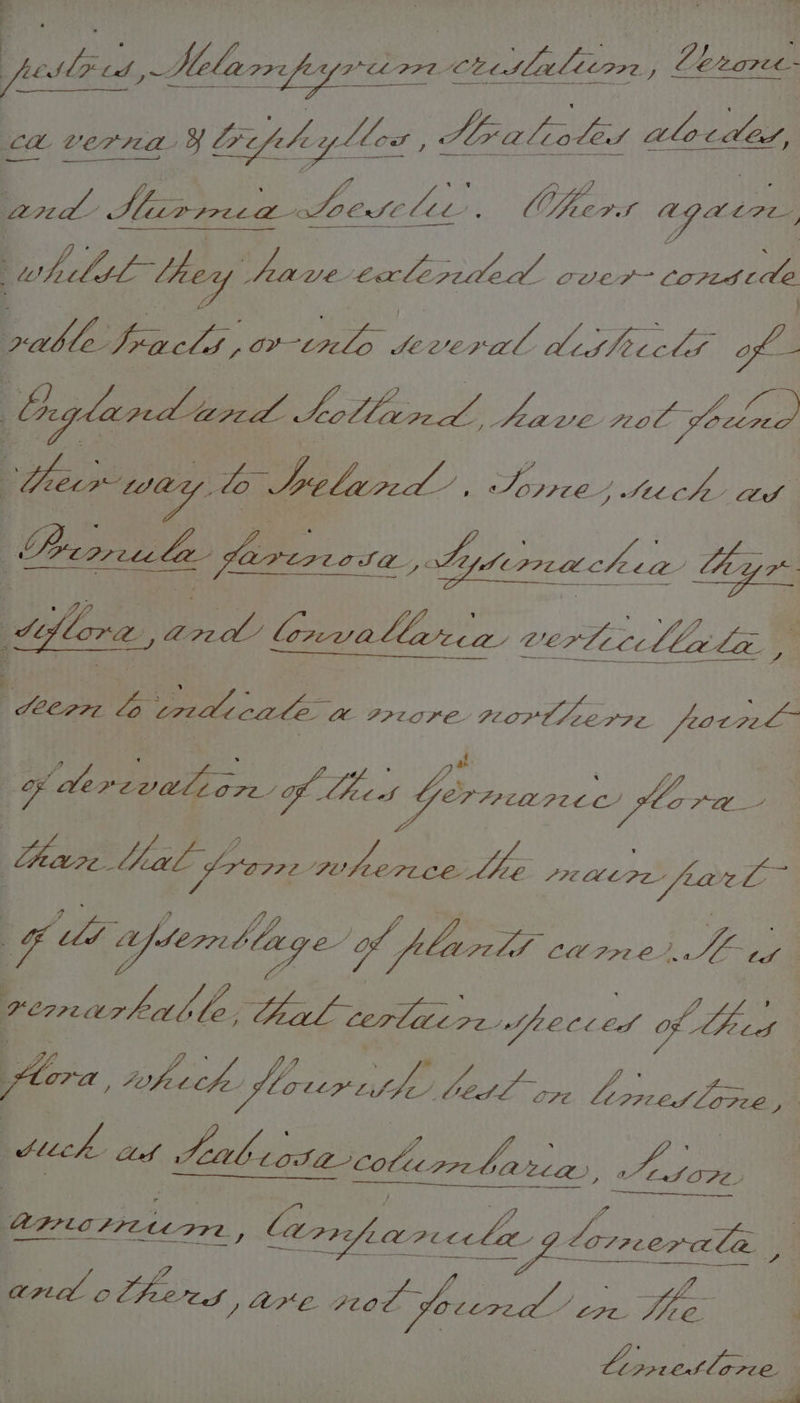 pestris, Melampyrum cristatum, Veroni-
ca verna & triphyllos, Stratiotes aloides,
and Sturmia Loeselii. Others again,
whilst they have extended over conside
rable tracts, or into several districts of
England and Scotland, have not found
their way to Ireland. Some, such as
Primula farinosa, Lysimachia thyr-
siflora, and Convallaria verticillata,
seem to indicate a more northern point
of derivation of this Germanic flora
than that from whence the main part
of its assemblage of plants came. It is
remarkable, that certain species of this
flora, which flourish best on limestone,
such as Scabiosa columbaria, Sison
amomum, Campanula glomerata,
and others, are not found in the
limestone